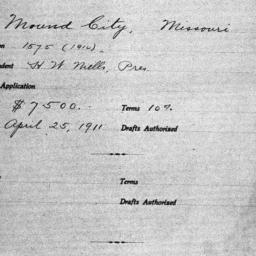 Mound City, Missouri
on 1575 (1910)
dent H. W. Mells, Pres.
Application
$7500. Terms 10%
April 25, 1911 Drafts Authorized
Terms
Drafts Authorized